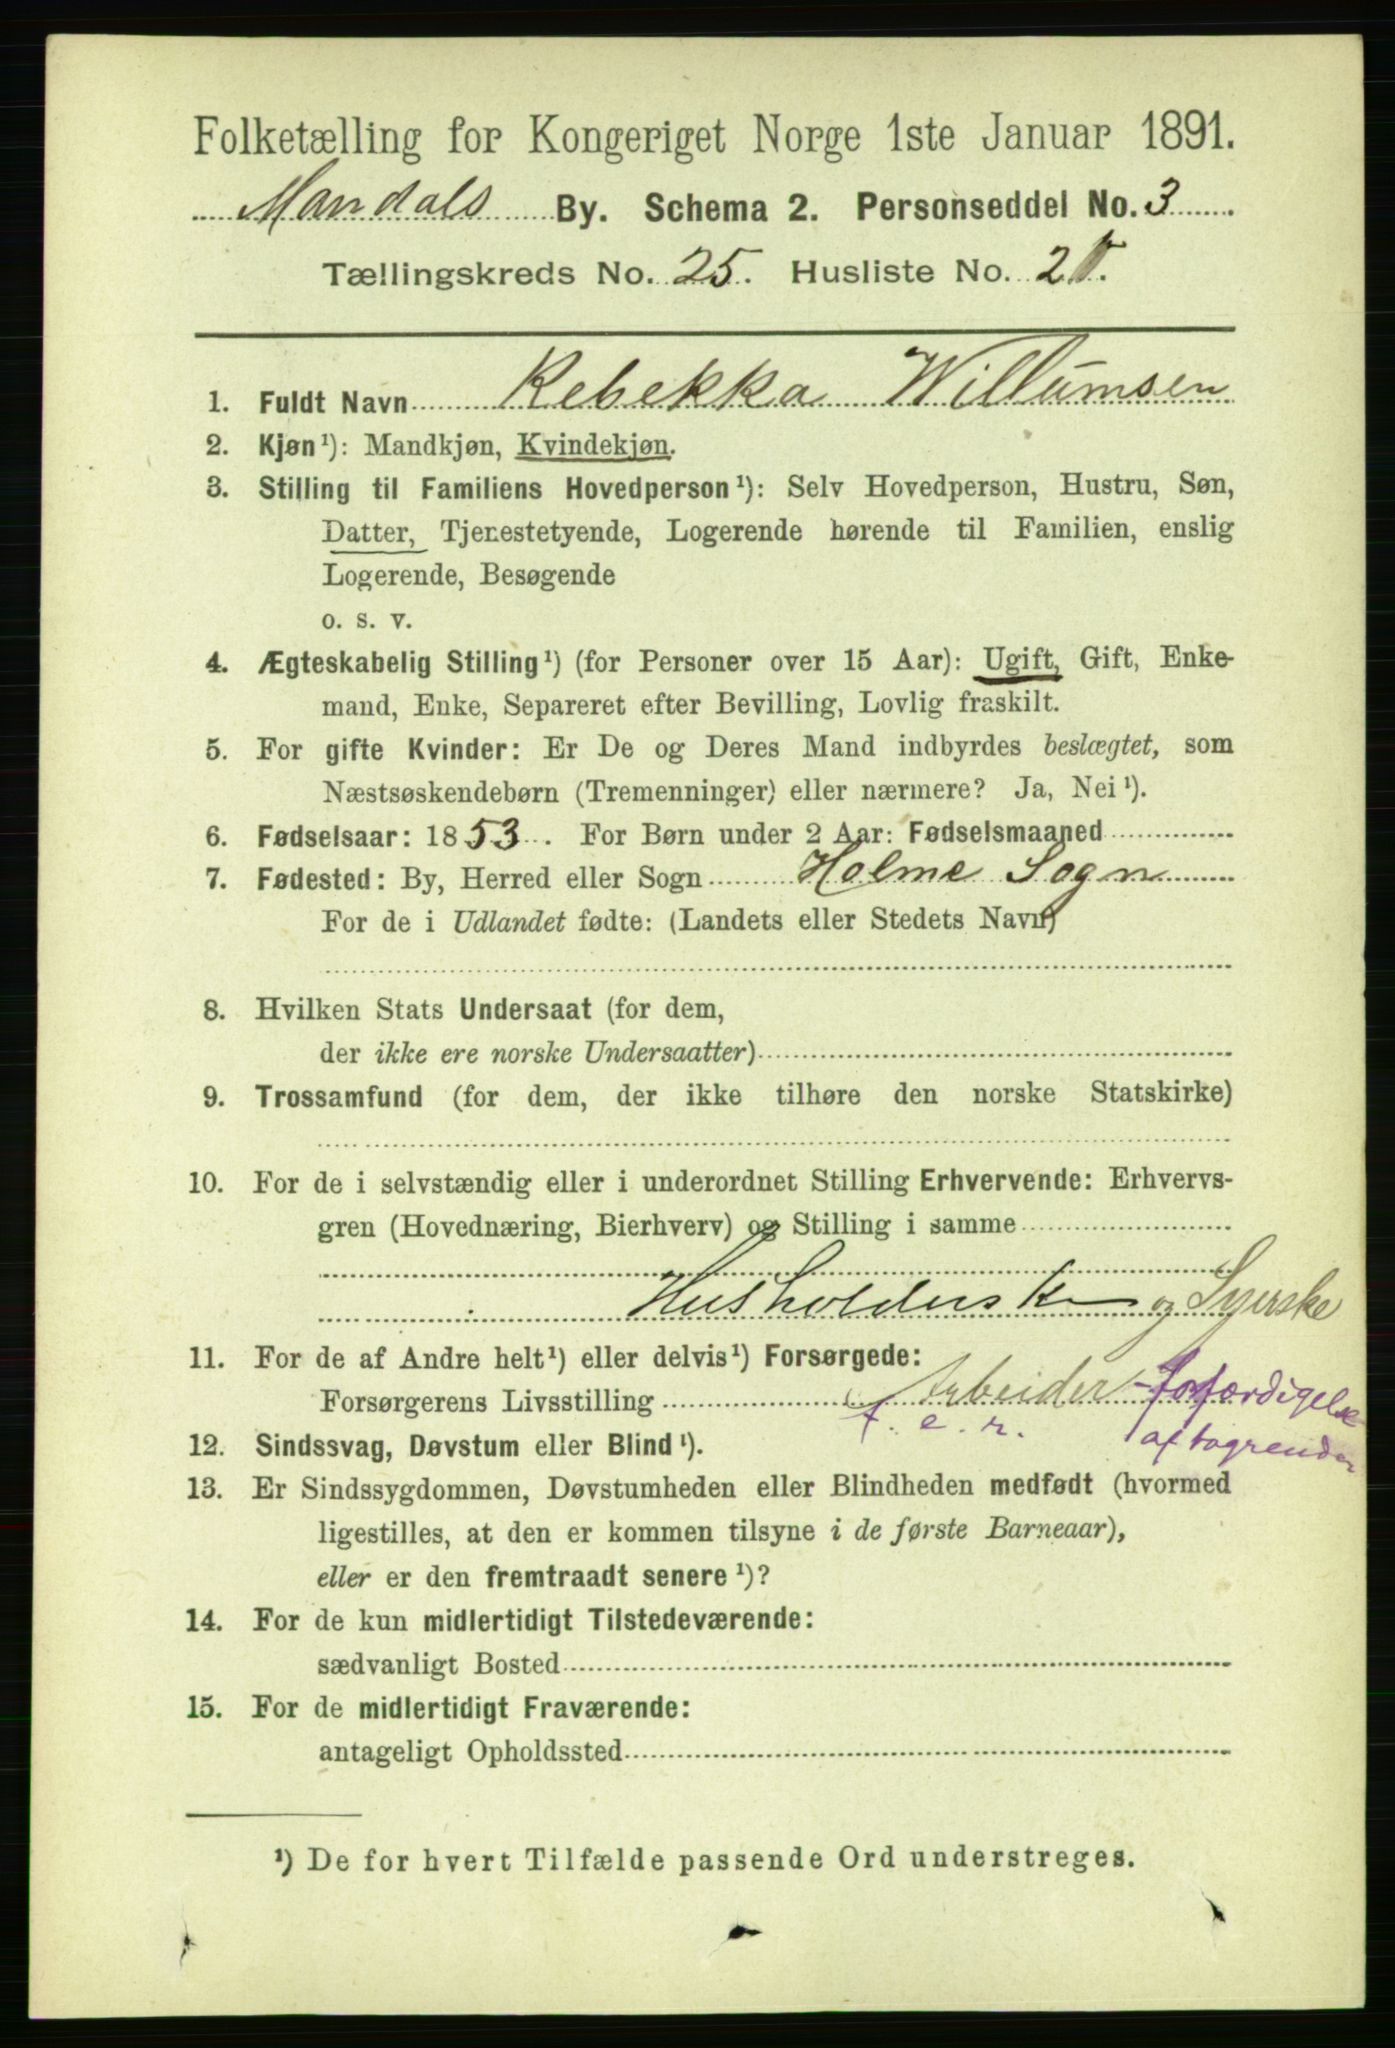 Folketælling for Kongeriget Norge 1ste Januar 1891.
Mandals By. Schema 2. Personseddel No. 3
Tællingskreds No. 25. Husliste No. 20.
1. Fuldt Navn Rebekka Willumsen
2. Kjøn¹): Mandkjøn, Kvindekjøn.
3. Stilling til Familiens Hovedperson¹): Selv Hovedperson, Hustru, Søn,
Datter, Tjenestetyende, Logerende hørende til Familien, enslig
Logerende, Besøgende
o. s. v.
4. Ægteskabelig Stilling¹) (for Personer over 15 Aar): Ugift, Gift, Enke-
mand, Enke, Separeret efter Bevilling, Lovlig fraskilt.
5. For gifte Kvinder: Er De og Deres Mand indbyrdes beslægtet, som
Næstsøskendebørn (Tremenninger) eller nærmere? Ja, Nei¹).
6. Fødselsaar: 1853. For Børn under 2 Aar: Fødselsmaaned
7. Fødested: By, Herred eller Sogn Holme Sogn
For de i Udlandet fødte: (Landets eller Stedets Navn)
8. Hvilken Stats Undersaat (for dem,
der ikke ere norske Undersaatter)
9. Trossamfund (for dem, der ikke tilhøre den norske Statskirke)
10. For de i selvstændig eller i underordnet Stilling Erhvervende: Erhvervs-
gren (Hovednæring, Bierhverv) og Stilling i samme
Husholderske og Syerske
11. For de af Andre helt¹) eller delvis¹) Forsørgede:
Forsørgerens Livsstilling Arbeider - forfærdigelse
f. e. r. af tagrender
12. Sindssvag, Døvstum eller Blind¹).
13. Er Sindssygdommen, Døvstumheden eller Blindheden medfødt (hvormed
ligestilles, at den er kommen tilsyne i de første Barneaar),
eller er den fremtraadt senere¹)?
14. For de kun midlertidigt Tilstedeværende:
sædvanligt Bosted
15. For de midlertidigt Fraværende:
antageligt Opholdssted
¹) De for hvert Tilfælde passende Ord understreges.